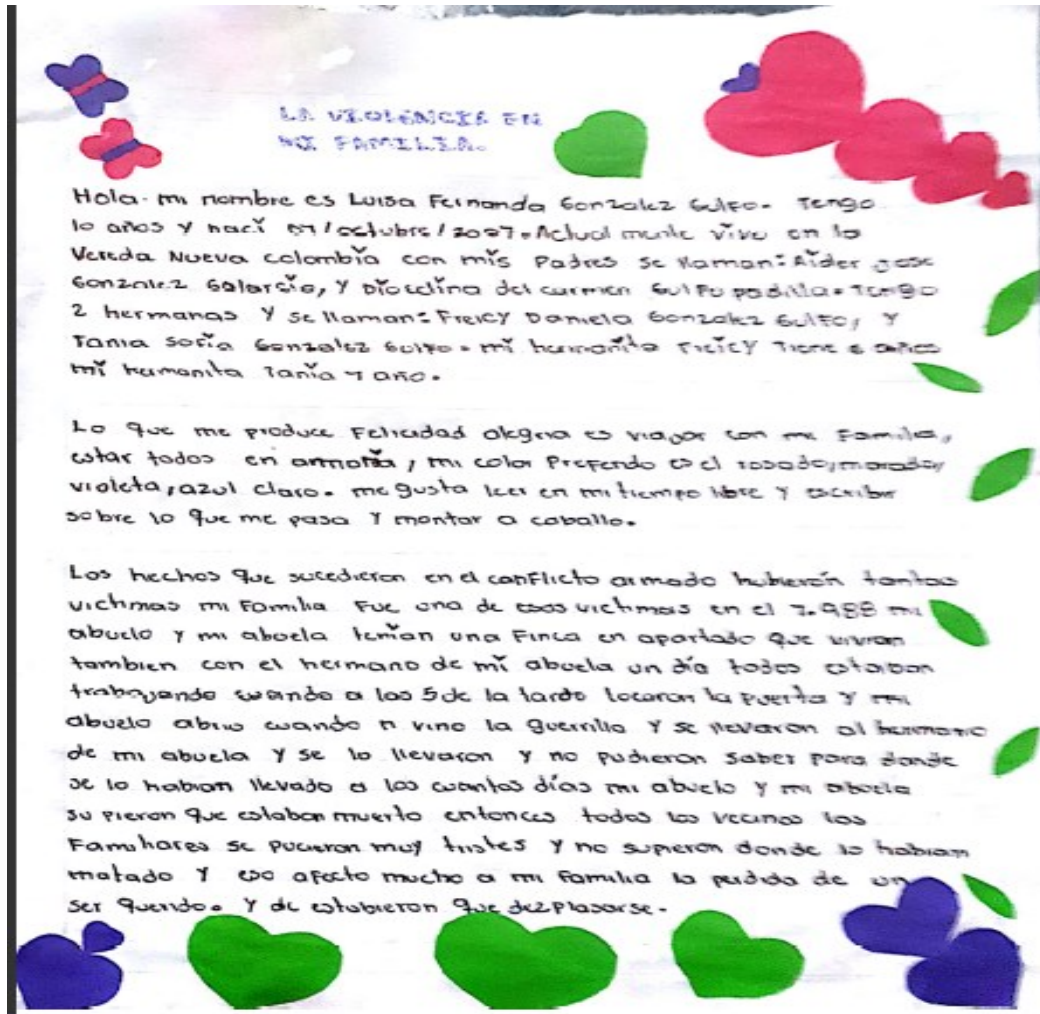 LA VIOLENCIA EN
MI FAMILIA.
Hola. mi nombre es Luisa Fernanda Gonzalez Gulfo. Tengo
10 años y nací 07/octubre/2007. Actual mente vivo en la
Vereda Nueva colombia con mis Padres se llaman: Aider jose
Gonzalez Galarcio, y Diocelina del carmen Gulfo padilla. Tengo
2 hermanas Y se llaman: Freicy Daniela Gonzalez Gulfo, Y
Tania Sofia Gonzalez Gulfo. mi hermanita Freicy Tiene 6 años
mi hermanita Tania 1 año.
Lo que me produce Felicidad alegria es viajar con mi Familia,
estar todos en armonia, mi color Preferido es el rosado, morado,
violeta, azul claro. me gusta leer en mi tiempo libre Y escribir
sobre lo que me pasa Y montar a caballo.
Los hechos que sucedieron en el conflicto armado hubierón tantas
victimas mi Familia Fue una de esas victimas en el 1.988 mi
abuelo y mi abuela tenian una Finca en apartado que vivian
tambien con el hermano de mi abuela un día todos estaban
trabajando cuando a las 5 de la tarde tocaron la Puerta Y mi
abuelo abrio cuando vino la guerrilla Y se llevaron al hermano
de mi abuela Y se lo llevaron Y no pudieron saber para donde
se lo habian llevado a los cuantos días mi abuelo Y mi abuela
su pieron que estaban muerto entonces todos los vecinos los
Familiares se pucieron muy tristes Y no supieron donde lo habian
matado Y eso afecto mucho a mi Familia la perdida de un
ser querido. Y de estubieron que dezplasarse.